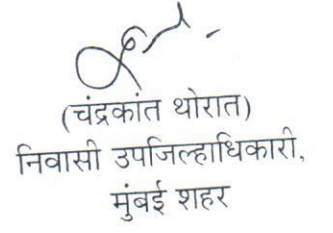 (चंद्रकांत थोरात)
निवासी उपजिल्हाधिकारी,
मुंबई शहर